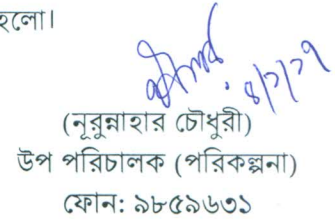 হলো।
৪/১/১৭
(নূরুন্নাহার চৌধুরী)
উপ পরিচালক (পরিকল্পনা)
ফোন: ৯৮৫৯৬৩১